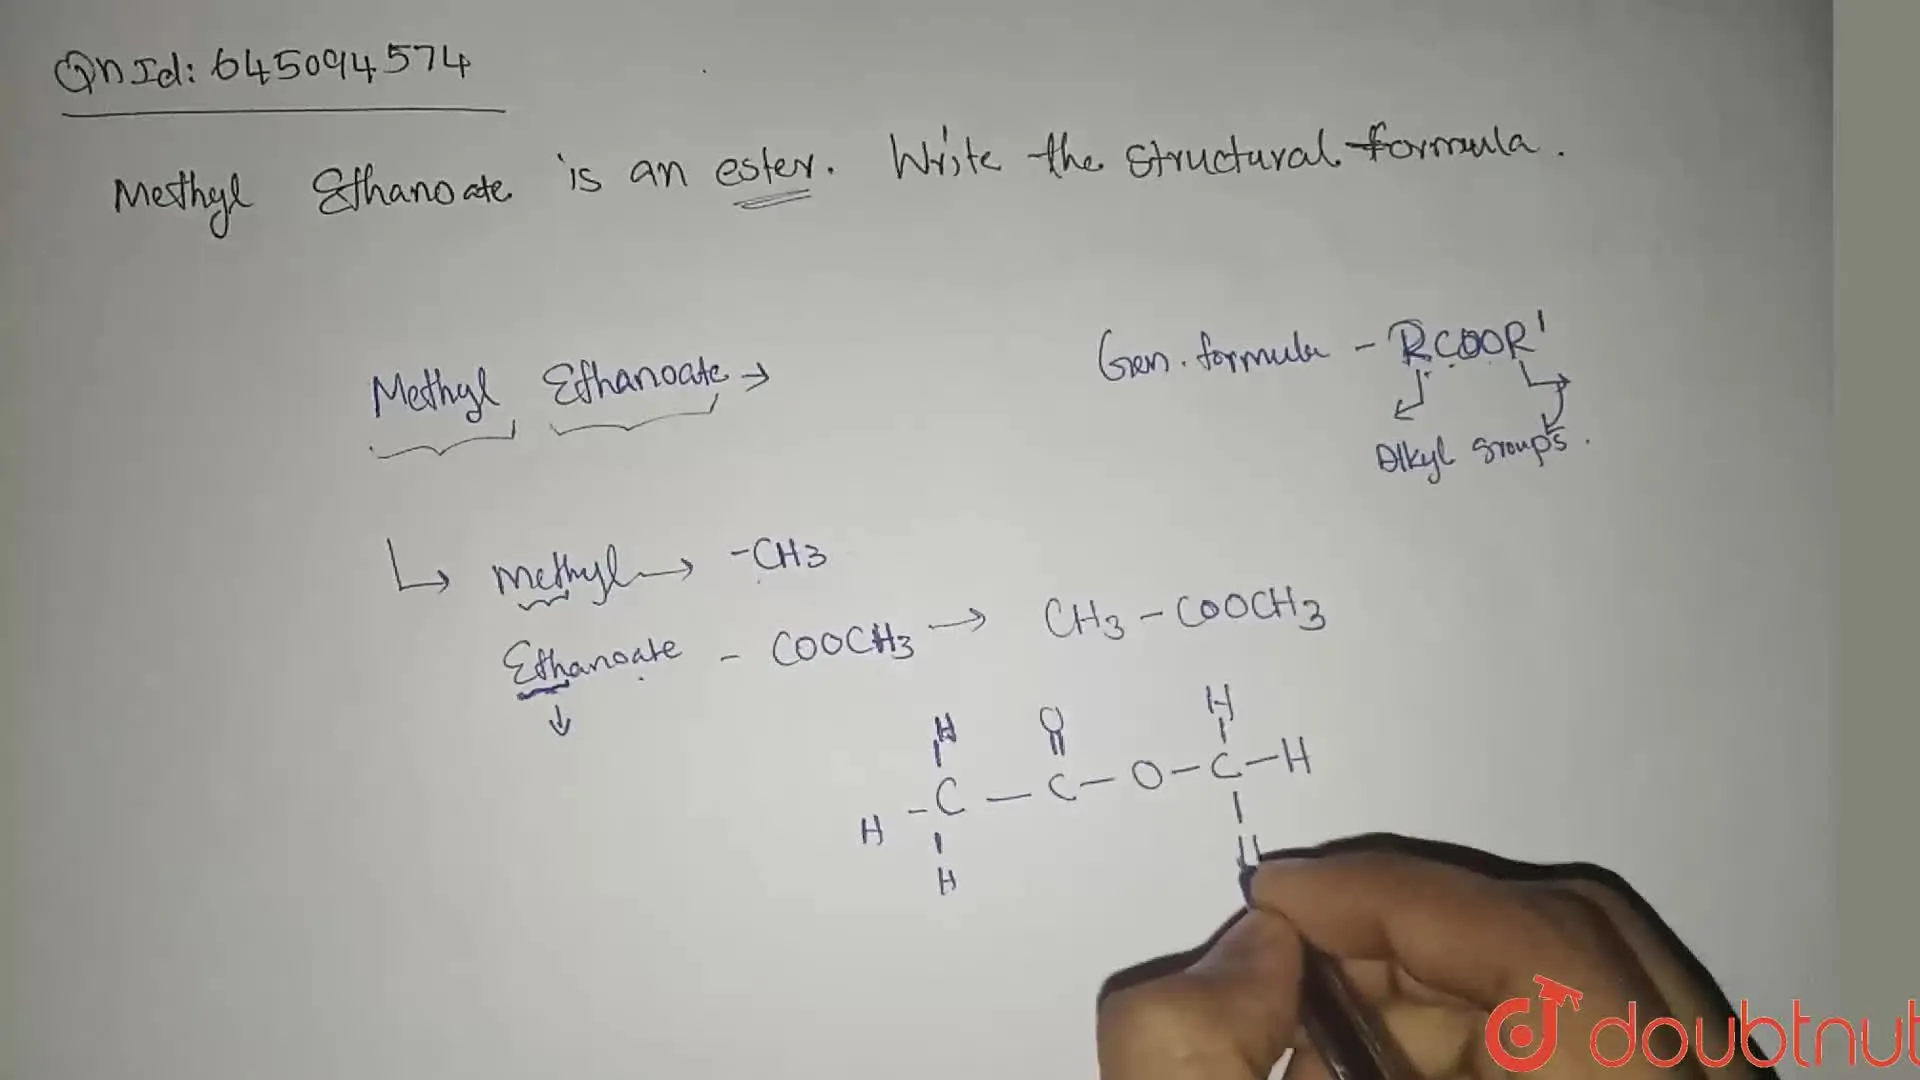 QnId: 645094574
Methyl Ethanoate is an ester. Write the structural formula.
Gen. formula - RCOOR'
Methyl Ethanoate →
Alkyl groups.
Methyl → -CH3
Ethanoate - COOCH3 → CH3 - COOCH3
H O H
H - C - C - O - C - H
H H
doubtnut